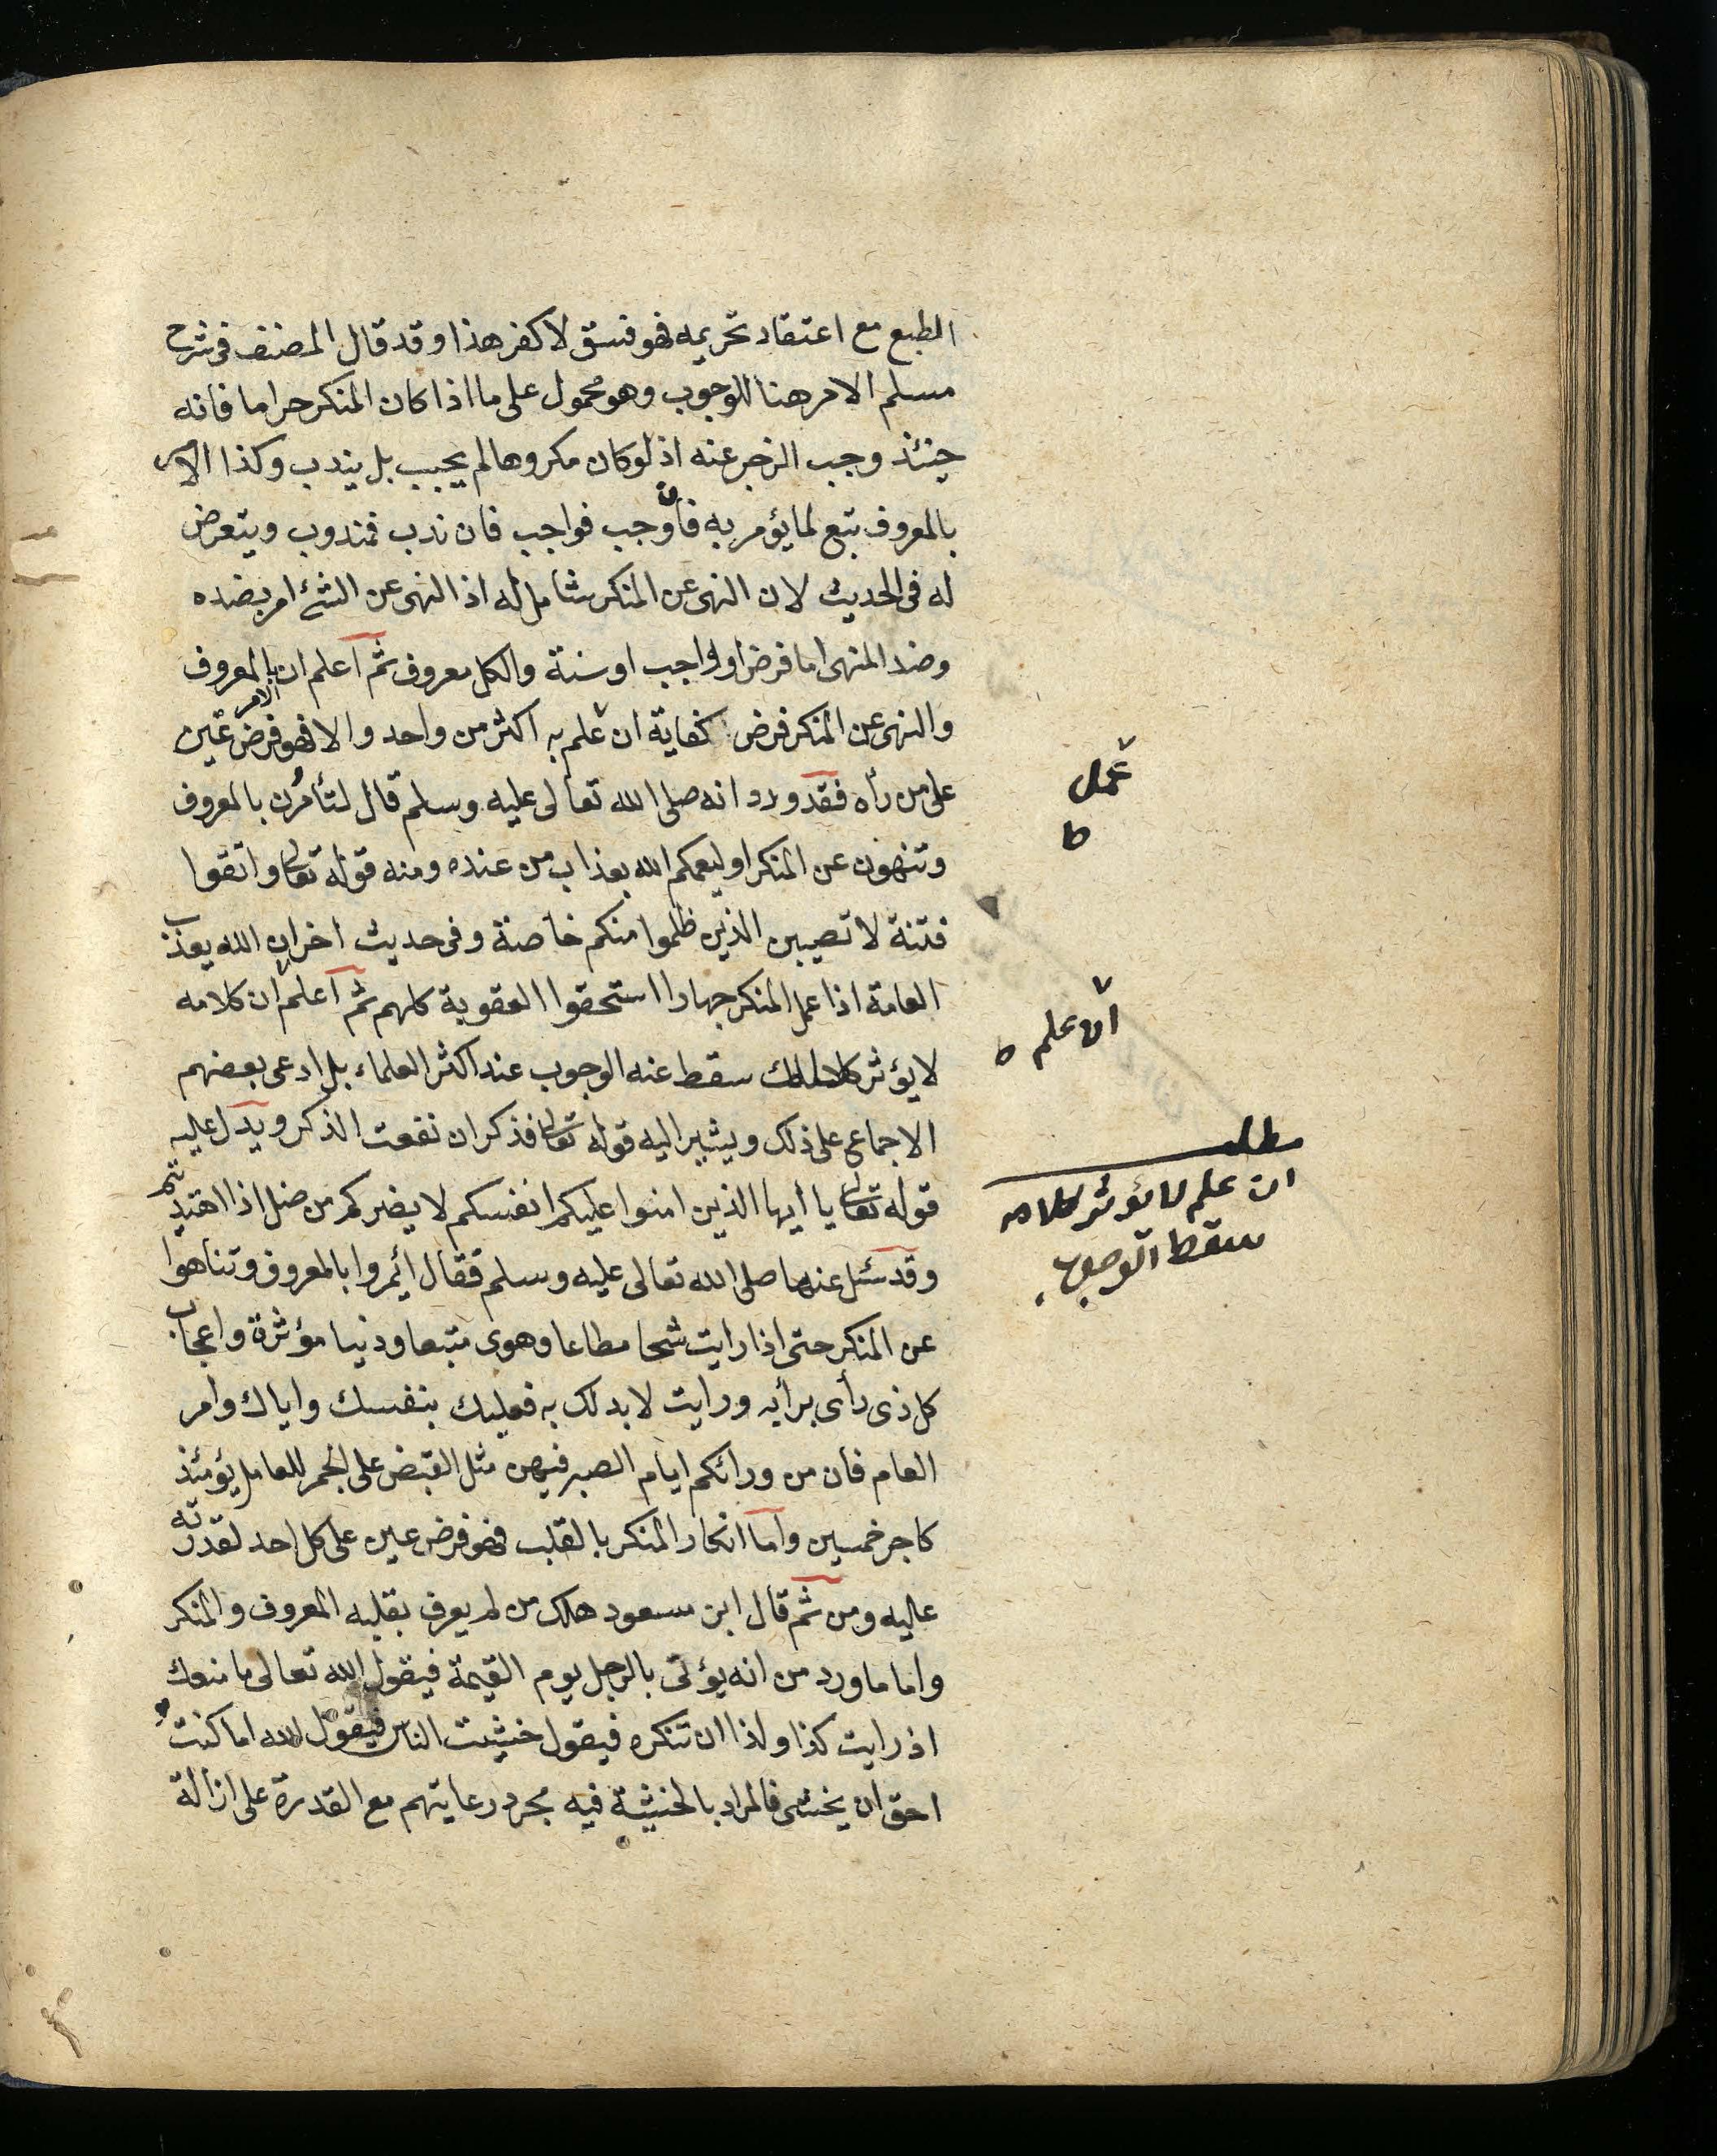 الطبع مع اعتقاد تحريمه فهو فسق لا كفر هذا وقد قال المصنف فى شرح
مسلم الامر هنا للوجوب وهو محمول على ما اذا كان المنكر حراما فانه
حينئذ وجب الزجر عنه اذ لو كان مكروها لم يجب بل يندب وكذا الامر
بالمعروف تبع لما يؤمر به فان وجب فواجب فان ندب فمندوب ويتعرض
له فى الحديث لان النهى عن المنكر شامل له اذ النهى عن الشئ امر بضده
وضد المنهى اما فرض او واجب او سنة والكل معروف ثم اعلم ان الامر بالمعروف
والنهى عن المنكر فرض كفاية ان علم به اكثر من واحد والا فهو فرض عين
على من رأه فقد ورد انه صلى الله تعالى عليه وسلم قال لتأمرن بالمعروف
وتنهون عن المنكر او ليعمكم الله بعذاب من عنده ومنه قوله تعالى واتقوا
فتنة لا تصيبن الذين ظلموا منكم خاصة وفى حديث اخر ان الله يعذب
العامة اذا عمل المنكر جهارا استحقوا العقوبة كلهم ثم اعلم ان كلامه
لا يؤثر سقط عنه الوجوب عند اكثر العلماء بل ادعى بعضهم
الاجماع على ذلك ويشير اليه قوله تعالى فذكر ان نفعت الذكر ويدل عليه
قوله تعالى يا ايها الذين امنوا عليكم انفسكم لا يضركم من ضل اذا اهتديتم
وقد سئل عنها صلى الله تعالى عليه وسلم فقال ائمروا بالمعروف وتناهوا
عن المنكر حتى اذا رايت شحا مطاعا وهوى متبعا ودنيا مؤثرة واعجاب
كل ذى رأى برأيه ورايت لا بد لك به فعليك بنفسك واياك وامر
العام فان من ورائكم ايام الصبر فيهن مثل القبض على الجمر للعامل يؤمئذ
كاجر خمسين واما انكار المنكر بالقلب فهو فرض عين على كل احد لقدرته
عليه ومن ثم قال ابن مسعود هلك من لم يعرف بقلبه المعروف والمنكر
واما ما ورد من انه يؤتى بالرجل يوم القيمة فيقول الله تعالى ما منعك
اذ رايت كذا وكذا ان تنكره فيقول خشيت الناس فيقول الله اما كنت
احق ان يخشى فالمراد بالخشية فيه مجرد رعايتهم مع القدرة على ازالة
عمل
ط
ان علم ط
مطلب
ان علم لا يؤثر كلامه
سقط الوجوب